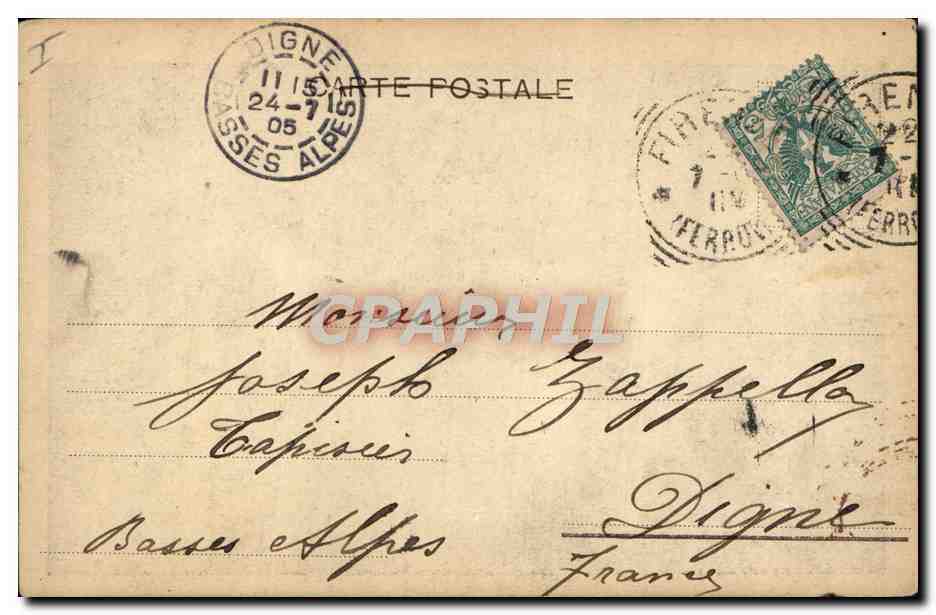 I
DIGNE
11 15
24 -7
05
BASSES ALPES
CARTE POSTALE
FIRENZE
7 -
(FERROV
FIREN
22
7 -
(FERRO
CPAPHIL
Monsieur
Joseph Zappella
Tapissier
Digne
Basses Alpes
France